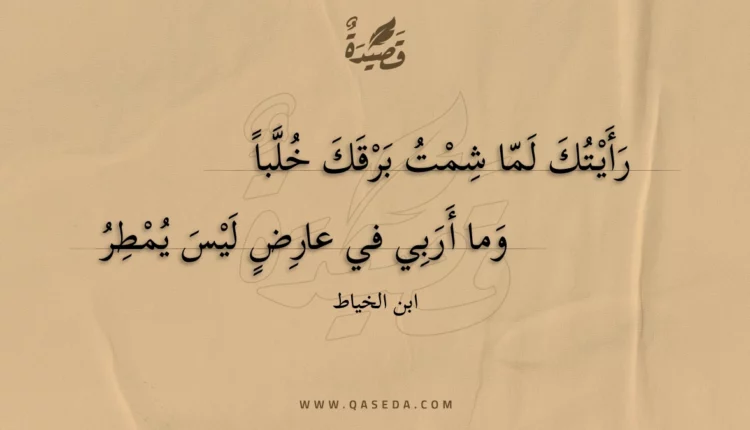 قَصِيْدَةٌ
رَأَيْتُكَ لَمّا شِمْتُ بَرْقَكَ خُلَّباً
وَما أَرَبِي في عارِضٍ لَيْسَ يُمْطِرُ
ابن الخياط
WWW.QASEDA.COM